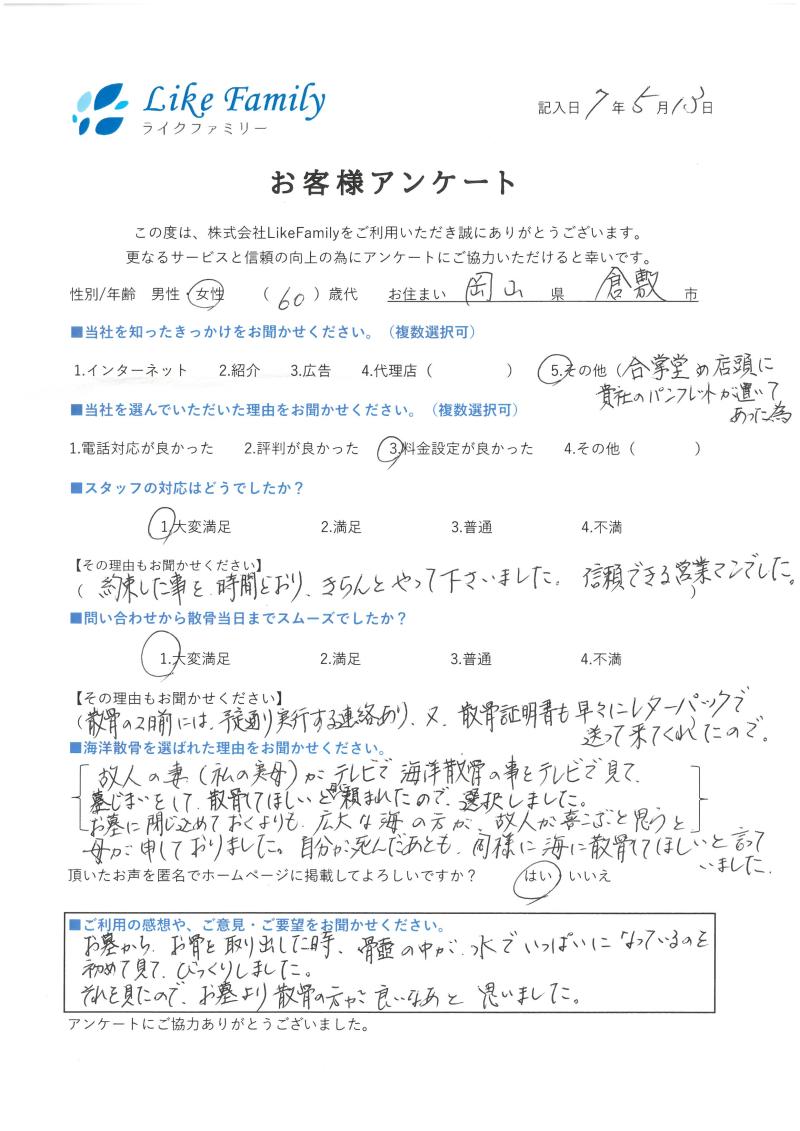 Like Family
ライクファミリー
記入日 7年5月13日
お客様アンケート
この度は、株式会社LikeFamilyをご利用いただき誠にありがとうございます。
更なるサービスと信頼の向上の為にアンケートにご協力いただけると幸いです。
性別/年齢 男性・女性 （60）歳代 お住まい 岡山 県 倉敷 市
■当社を知ったきっかけをお聞かせください。（複数選択可）
1.インターネット 2.紹介 3.広告 4.代理店（ ） 5.その他（合掌堂の店頭に
貴社のパンフレットが置いて
あった為
■当社を選んでいただいた理由をお聞かせください。（複数選択可）
1.電話対応が良かった 2.評判が良かった 3.料金設定が良かった 4.その他（ ）
■スタッフの対応はどうでしたか？
1.大変満足 2.満足 3.普通 4.不満
【その理由もお聞かせください】
（約束した事を、時間どおり、きちんとやって下さいました。信頼できる営業マンでした。）
■問い合わせから散骨当日までスムーズでしたか？
1.大変満足 2.満足 3.普通 4.不満
【その理由もお聞かせください】
（散骨の2日前には、予定通り実行する連絡あり、又、散骨証明書も早々にレターパックで
送って来てくれたので。）
■海洋散骨を選ばれた理由をお聞かせください。
故人の妻（私の実母）がテレビで海洋散骨の事をテレビで見て、
墓じまいをして、散骨してほしいと頼まれたので、選択しました。
お墓に閉じ込めておくよりも、広大な海の方が、故人が喜こぶと思うと
母が申しておりました。自分が死んだあとも、同様に海に散骨してほしいと言って
いました。
頂いたお声を匿名でホームページに掲載してよろしいですか？ はい・いいえ
■ご利用の感想や、ご意見・ご要望をお聞かせください。
お墓から、お骨を取り出した時、骨壺の中が、水でいっぱいになっているのを
初めて見て、びっくりしました。
それを見たので、お墓より散骨の方が良いなあと思いました。
アンケートにご協力ありがとうございました。